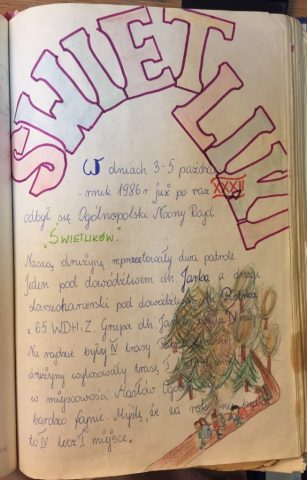 ŚWIETLIKI
W dniach 3-5 paździe
-rnik 1986 r. już po raz XXXII
odbył się Ogólnopolski Nocny Rajd
"ŚWIETLIKÓW".
Naszą drużynę reprezentowały dwa patrole
Jeden pod dowództwem dh. Jarka a drugi
starszoharcerski pod dowództwem dh. Piotrka
z 65 WDH i Z. Grupa dh. Jarka zajęła IV miejsce
Na rajdzie były IV trasy
drużyny wylosowały trasę I
w miejscowość Masłów
bardzo fajnie. Myślę, że za rok
to IV lecz I miejsce.